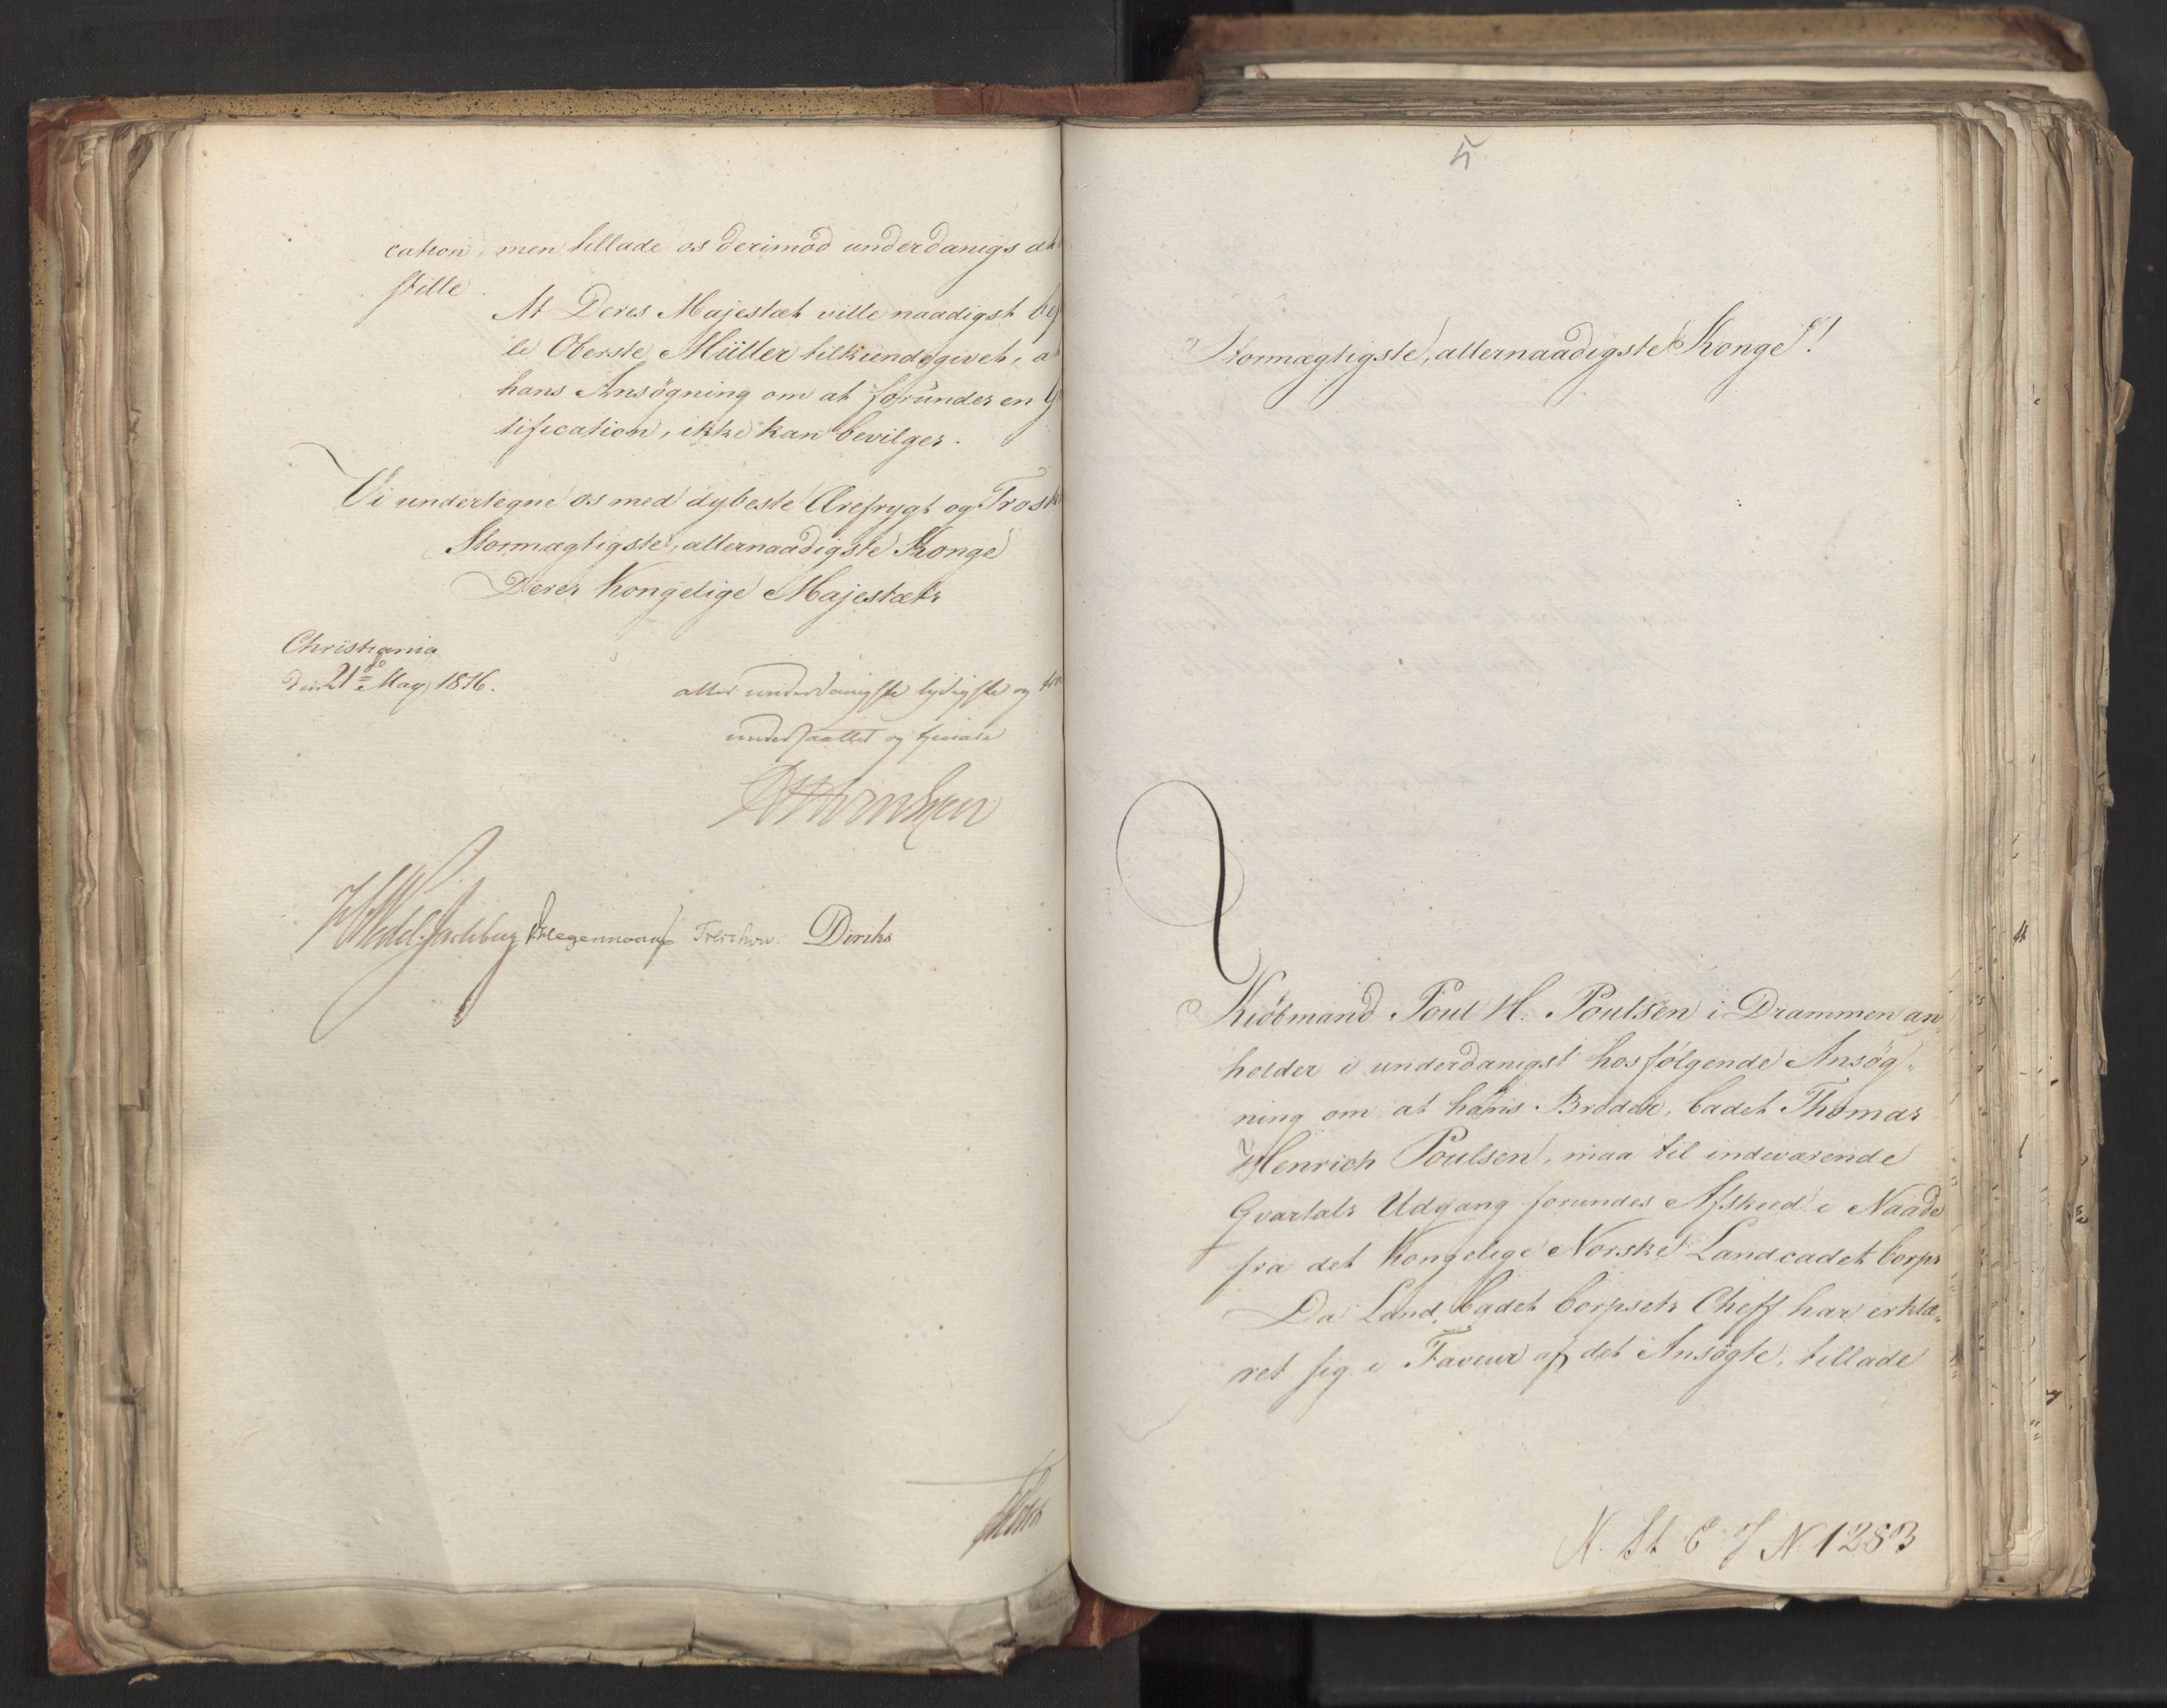 cation, men tillade os derimod underdanigs at
stille
At Deres Majestæt ville naadigst be
le Oberste Müller tilkiendegivet, a
hans Ansögning om at forundes en G
tification, ikke kan bevilges.
Vi undertegne os med dybeste Ærefrygt og Trosk
Stormægtigste, allernaadigste Konge
Deres Kongelige Majestæts
Christiania
den 21de May 1816.
aller underdanigste lydigste og
undersaatter og tjenere
HWedel-Jarlsberg Hegermann Treschow. Diriks
5
Stormægtigste, allernaadigste Konge!
Kiöbmand Poul H. Poulsen i Drammen an
holder i underdanigst hosfölgende Ansög-
ning om at hans Broder, Cadet Thomas
Henrich Poulsen, maa til indeværende
Qvartals Udgang forundes Afskeed i Naade
fra det Kongelige Norske Landcadet Corps
Da Land Cadet Corpsets Cheff har erklæ-
ret sig i Faveur af det Ansögte, tillade
N. St. E. J N. 1283